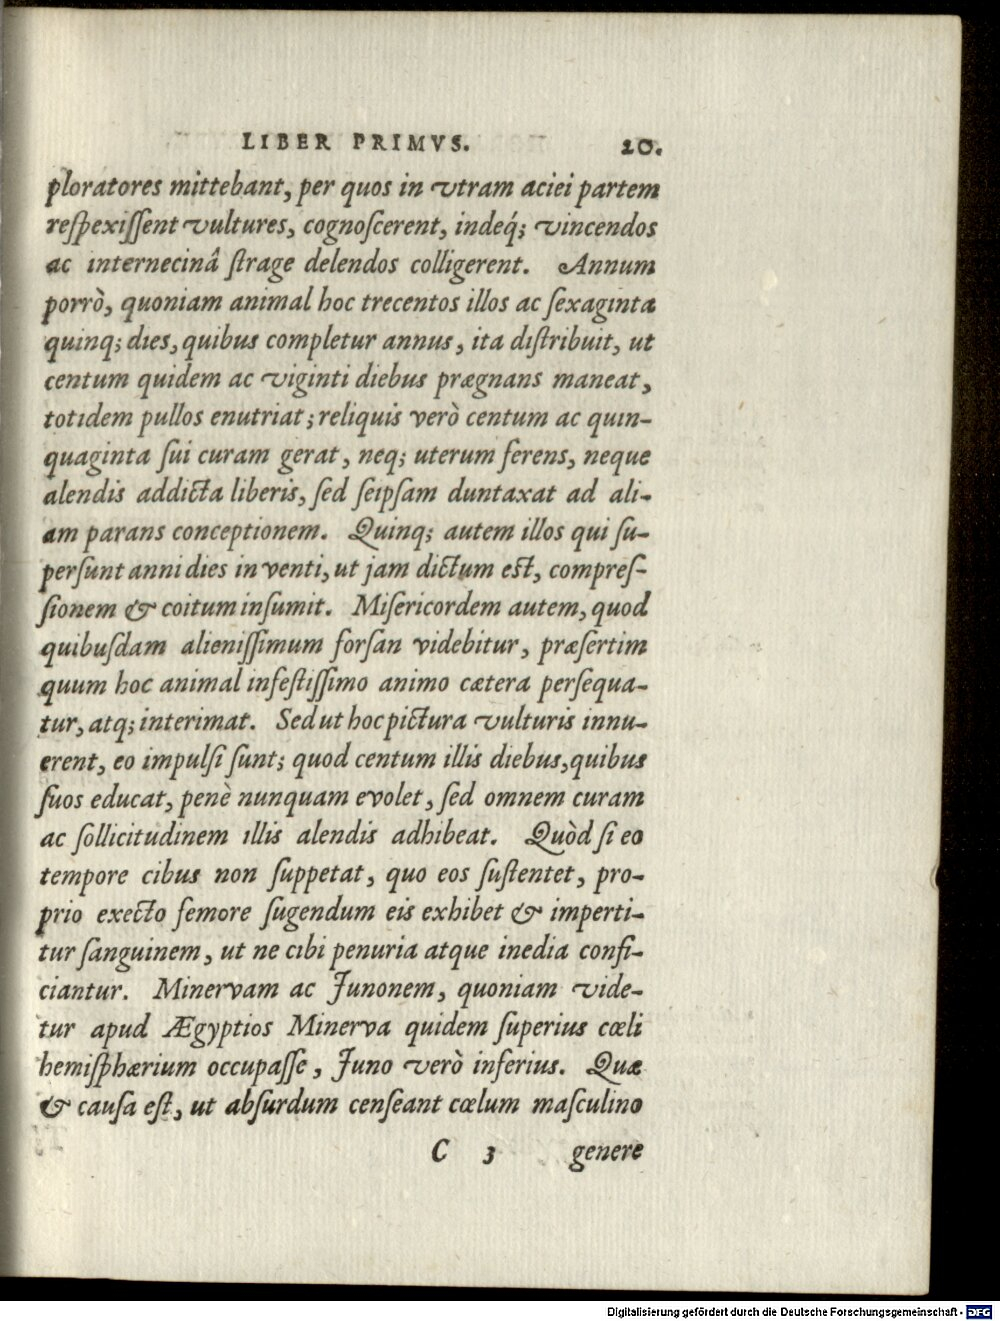 LIBER PRIMVS. 20.
ploratores mittebant, per quos in vtram aciei partem
reſpexiſſent vultures, cognoſcerent, indeq́; vincendos
ac internecinâ ſtrage delendos colligerent. Annum
porrò, quoniam animal hoc trecentos illos ac ſexaginta
quinq; dies, quibus completur annus, ita diſtribuit, ut
centum quidem ac viginti diebus prægnans maneat,
totidem pullos enutriat; reliquis verò centum ac quin-
quaginta ſui curam gerat, neq; uterum ferens, neque
alendis addicta liberis, ſed ſeipſam duntaxat ad ali-
am parans conceptionem. Quinq; autem illos qui ſu-
perſunt anni dies in venti, ut jam dictum est, compreſ-
ſionem & coitum inſumit. Miſericordem autem, quod
quibuſdam alieniſſimum forſan videbitur, præſertim
quum hoc animal infeſtiſſimo animo cætera perſequa-
tur, atq; interimat. Sed ut hoc pictura vulturis innu-
erent, eo impulſi ſunt; quod centum illis diebus, quibus
ſuos educat, penè nunquam evolet, ſed omnem curam
ac ſollicitudinem illis alendis adhibeat. Quòd ſi eo
tempore cibus non ſuppetat, quo eos ſuſtentet, pro-
prio execto femore ſugendum eis exhibet & imperti-
tur ſanguinem, ut ne cibi penuria atque inedia confi-
ciantur. Minervam ac Junonem, quoniam vide-
tur apud Ægyptios Minerva quidem ſuperius cœli
hemiſphærium occupaſſe, Juno verò inferius. Quæ
& cauſa eſt, ut abſurdum cenſeant cœlum maſculino
C 3 genere
Digitalisierung gefördert durch die Deutsche Forschungsgemeinschaft - DFG